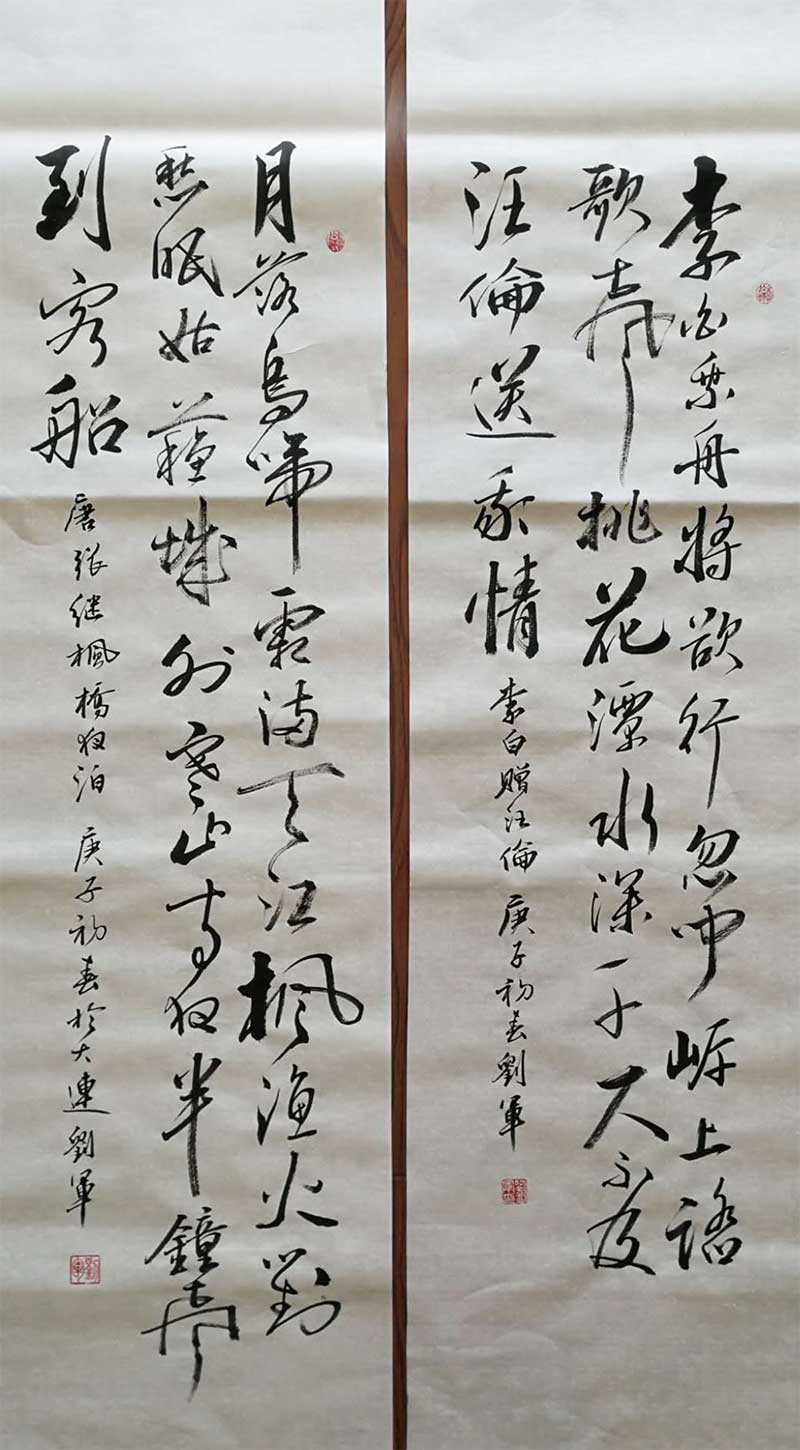 李白乘舟將欲行忽聞岸上踏
歌聲桃花潭水深千尺不及
汪倫送我情 李白贈汪倫 庚子初春劉軍
月落烏啼霜滿天江楓漁火對
愁眠姑蘇城外寒山寺夜半鐘聲
到客船 唐張继楓橋夜泊 庚子初春於大連劉軍